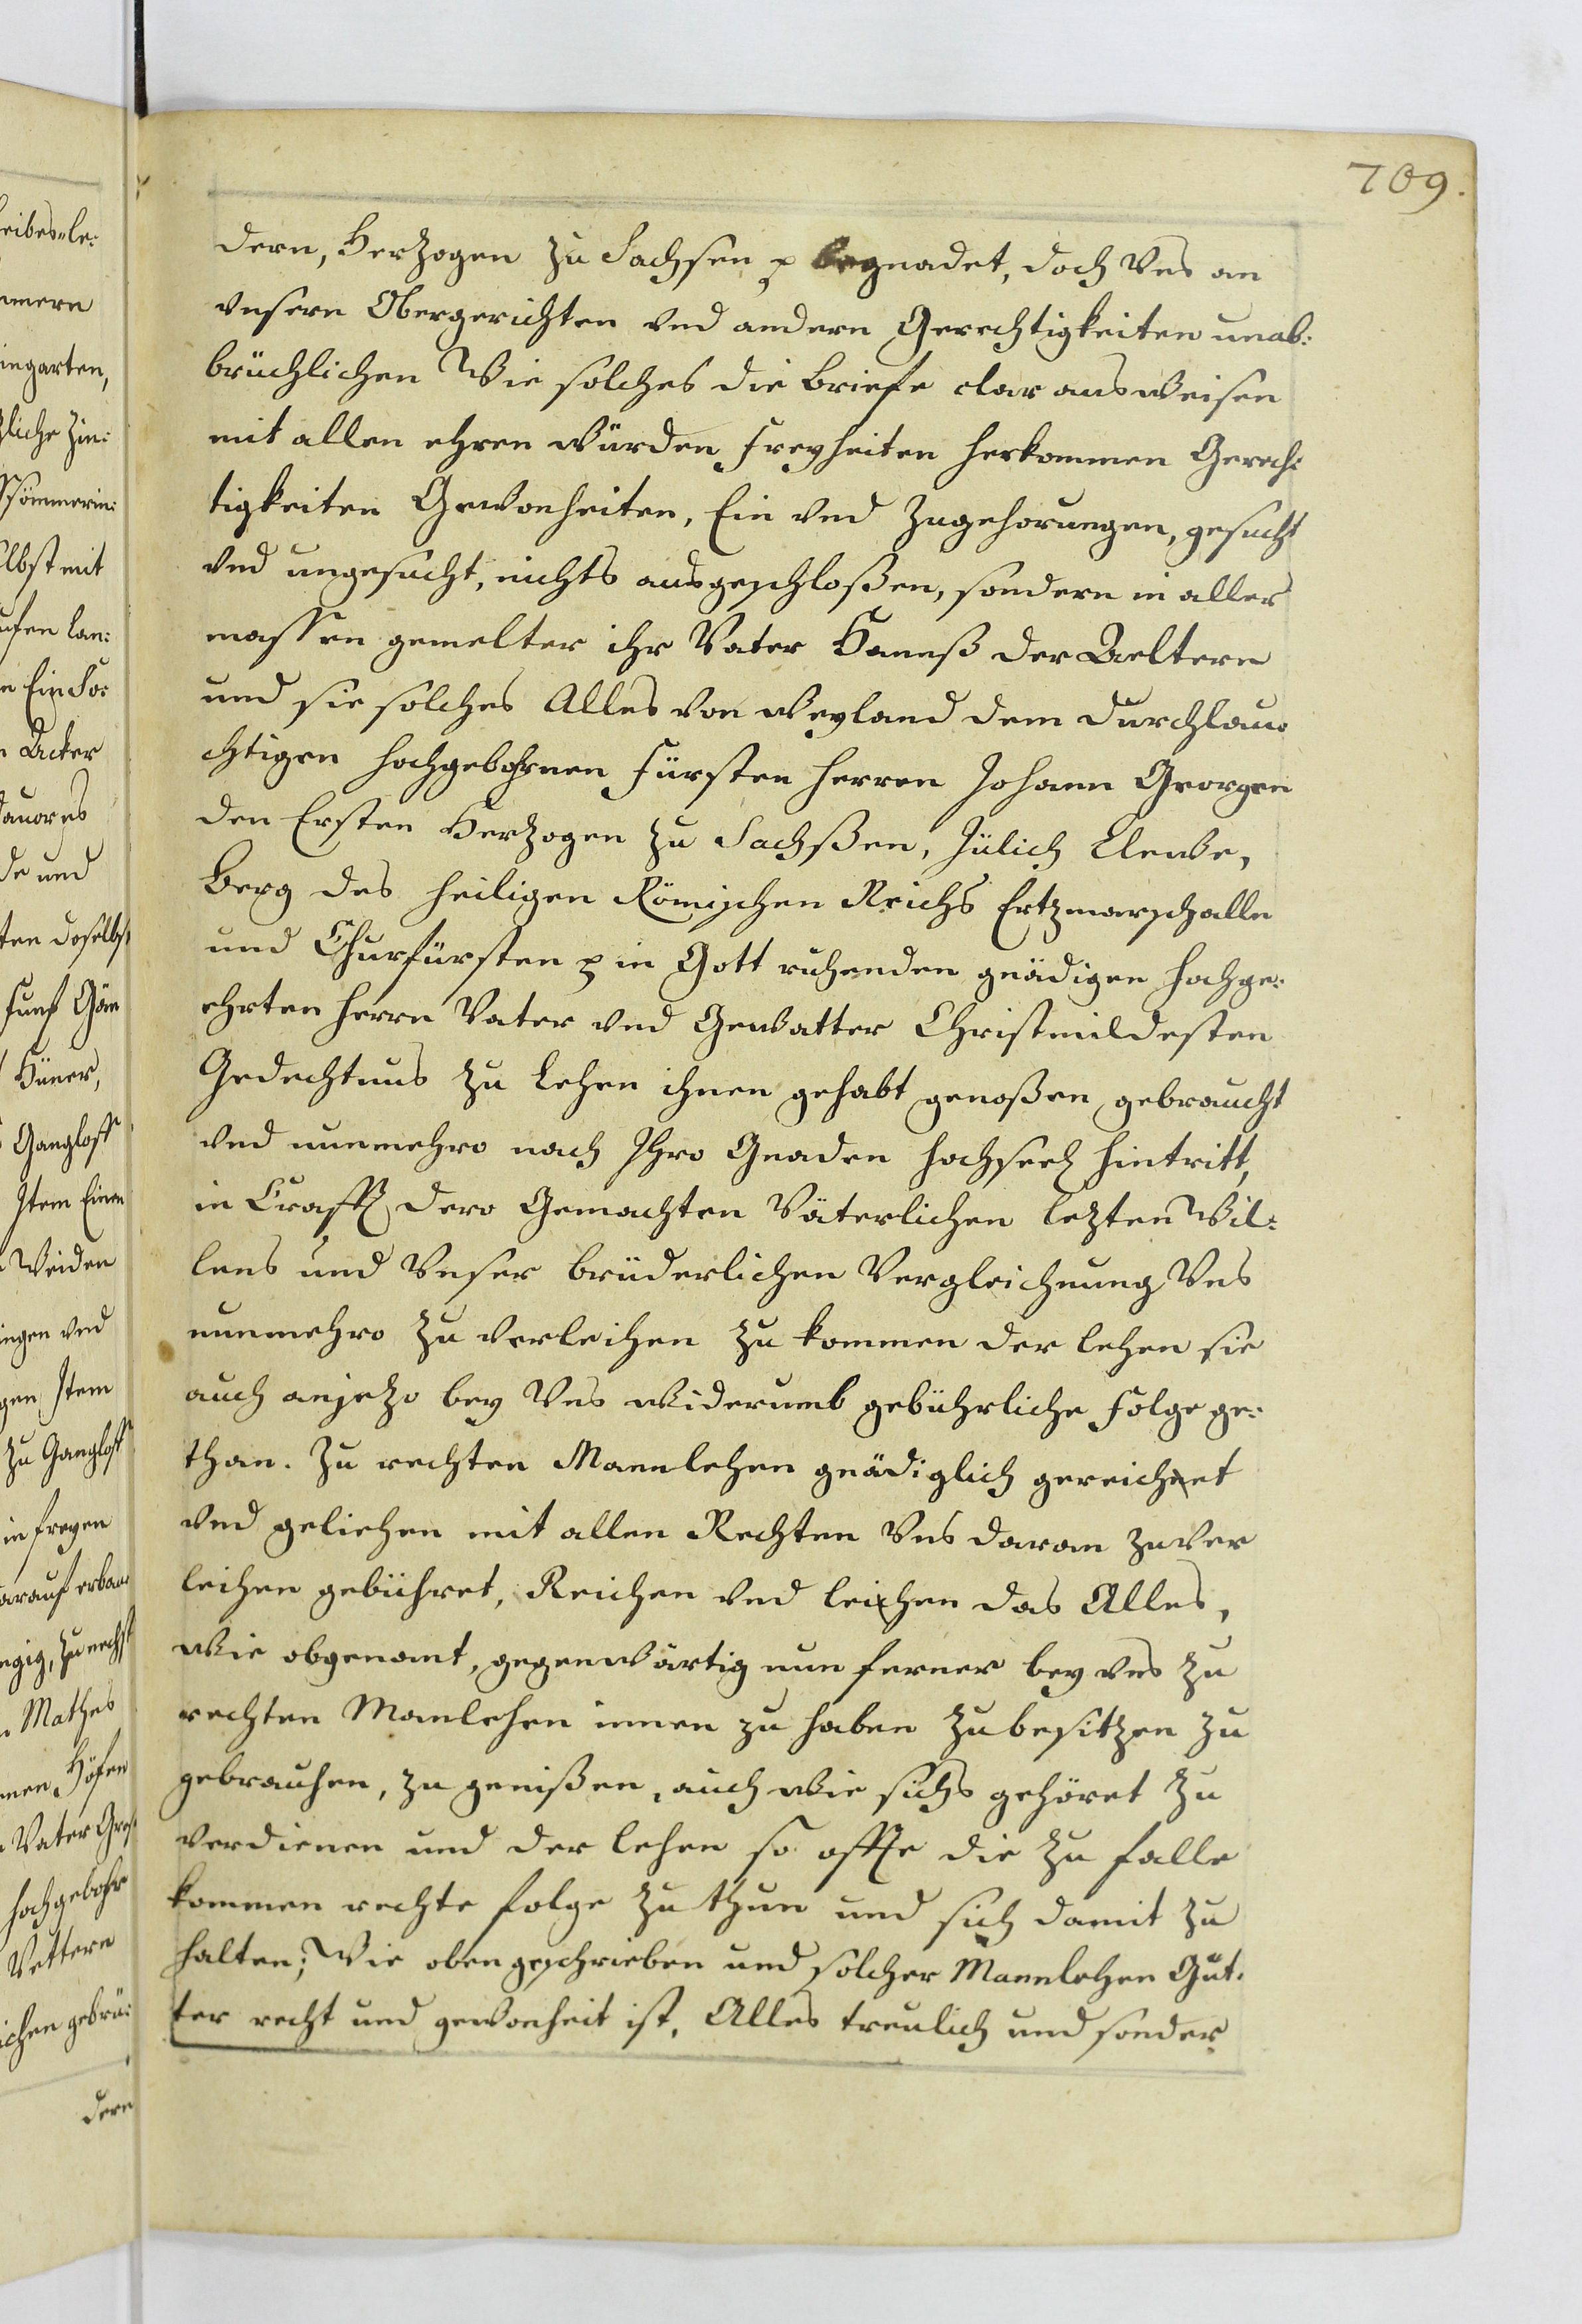 709.
dern, Herzogen zu Sachsen p begnadet, doch Vns an
vnsern Obergerichten vnd andern Gerechtigkeiten unab:
brüchlichen Wie solches die Briefe clar ausweisen
mit allen ehren würden freyheiten herkommen Gerech:
tigkeiten Gewonheiten, Ein vnd Zugehorungen, gesucht
vnd ungesucht, nichts ausgeschloßen, sondern in aller
massen gemelter ihr Vater Hanß der Aeltere
und sie solches Alles von weyland dem Durchlau=
chtigen hochgebohrnen Fürsten Herren Johann Georgen
den Ersten Herzogen zu Sachßen, Jülich Cleve,
Berg des heiligen Römischen Reichs Ertzmarschalle
und Churfürsten p in Gott ruhenden gnädigen hochge:
ehrten Herrn Vater vnd Gevatter Christmildesten
Gedechtnus zu Lehen ihnen gehabt genoßen gebraucht
vnd nunmehro nach Ihro Gnaden hochseel hintritt,
in Crafft dero Gemachten Väterlichen lezten Wil:
lens und Vnser brüderlichen Vergleichnung Vns
nunmehro zu verleihen zu kommen der lehen sie
auch anjetzo bey Vns widerumb gebührliche folge ge:
than. Zu rechten Mannlehen gnädiglich gereichet
vnd geliehen mit allen Rechten Vns daran zu ver
leihen gebühret, Reichen vnd leihen das Alles,
wie obgenant, gegenwärtig nun ferner bey vns zu
rechten Manlehen innen zu haben zu besitzen zu
gebrauchen, zu genißen, auch wie sichs gehöret zu
verdienen und der lehen so offte die zu falle
kommen rechte folge zu thun und sich damit zu
halten; Wie oben geschrieben und solcher Mannlehen Güt:
ter recht und gewonheit ist, Alles treulich und sonder